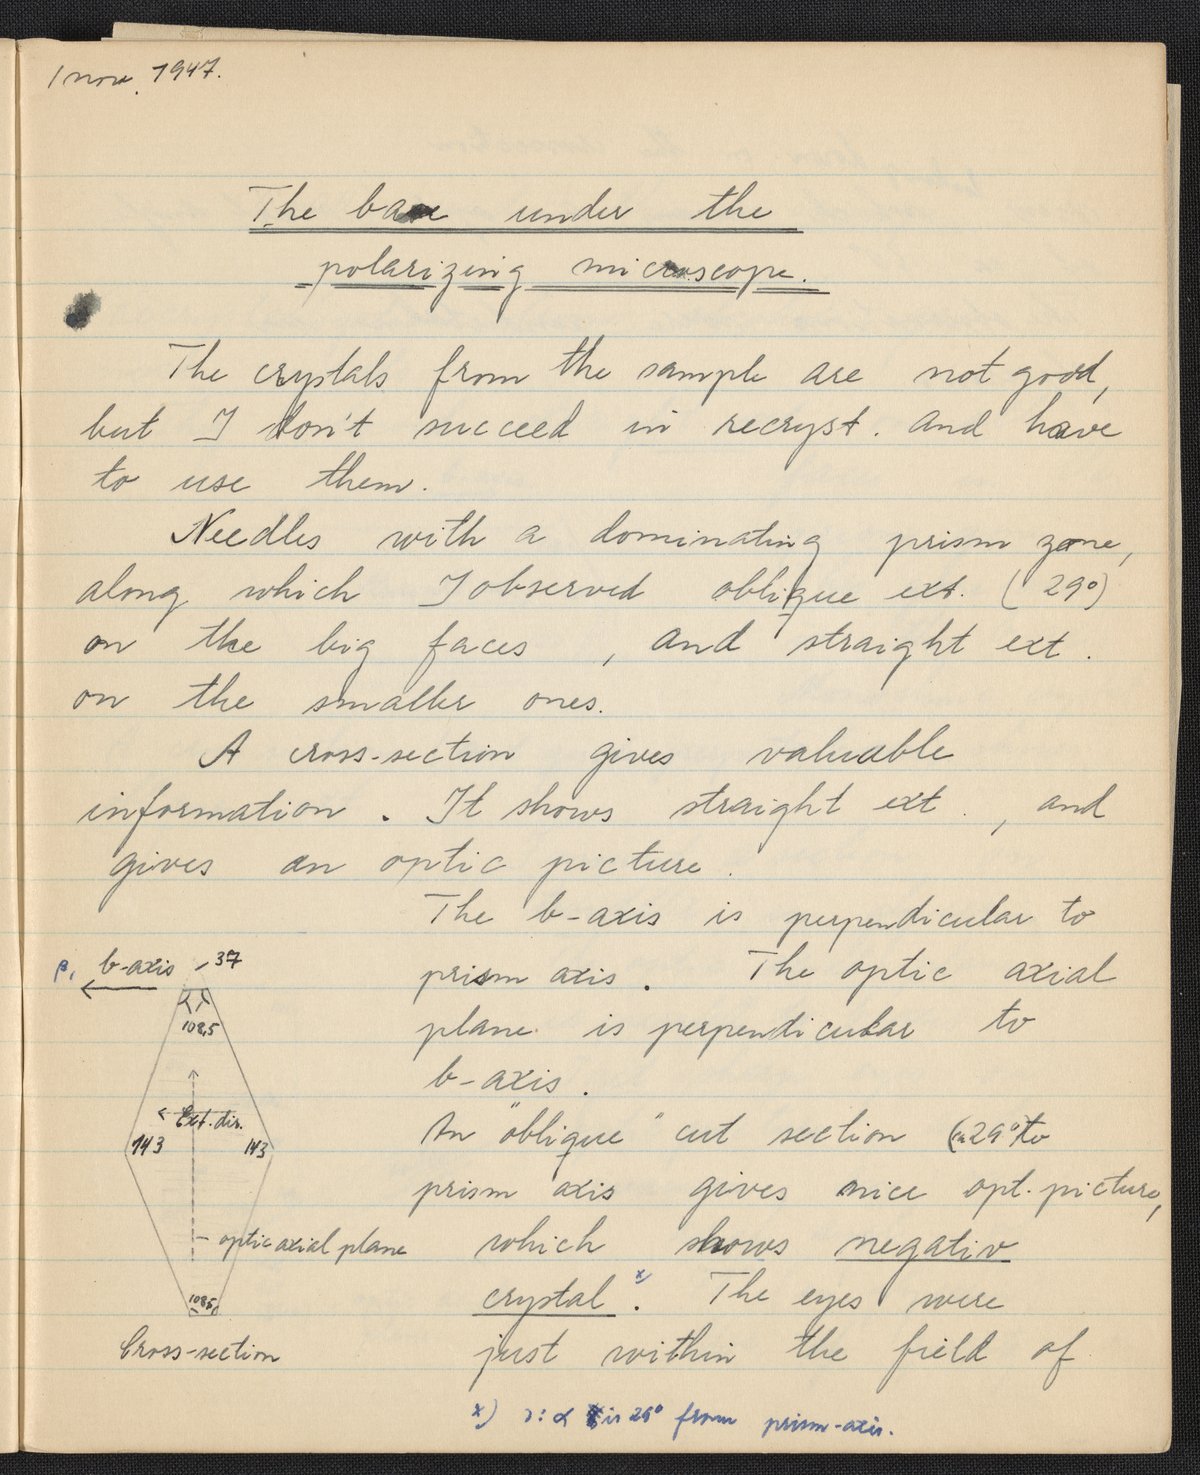 1 nov. 1947.
The base under the
polarizing microscope.
The crystals from the sample are not good,
but I don't succeed in recryst. and have
to use them.
Needles with a dominating prism zone,
along which I observed oblique ext. (29°)
on the big faces, and straight ext.
on the smaller ones.
A cross-section gives valuable
information. It shows straight ext., and
gives an optic picture.
The b-axis is perpendicular to
prism axis. The optic axial
plane is perpendicular to
b-axis.
An "oblique" cut section (~29° to
prism axis gives nice opt. picture,
which shows negativ
crystal x). The eyes were
just within the field of
x) ɔ: α is 29° from prism-axis.
β, b-axis
37
108,5
Ext. dir.
143 143
optic axial plane
108,5
Cross-section